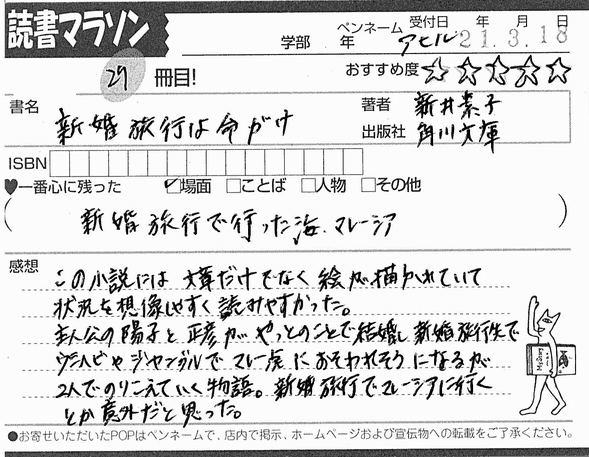 読書マラソン
学部 年 ペンネーム アヒル 受付日 年 月 日 21.3.18
29 冊目!
おすすめ度 ☆☆☆☆☆
書名 新婚旅行は命がけ
著者 新井素子
出版社 角川文庫
ISBN
♥一番心に残った ☑場面 □ことば □人物 □その他
(新婚旅行で行った海、マレーシア)
感想
この小説には文章だけでなく絵が描かれていて
状況を想像しやすく読みやすかった。
主人公の陽子と正彦がやっとのことで結婚し新婚旅行先で
ウミヘビやジャングルでマレー虎におそわれそうになるが
2人でのりこえていく物語。新婚旅行でマレーシアに行く
とか意外だと思った。
●お寄せいただいたPOPはペンネームで、店内で掲示、ホームページおよび宣伝物への転載をご了承ください。